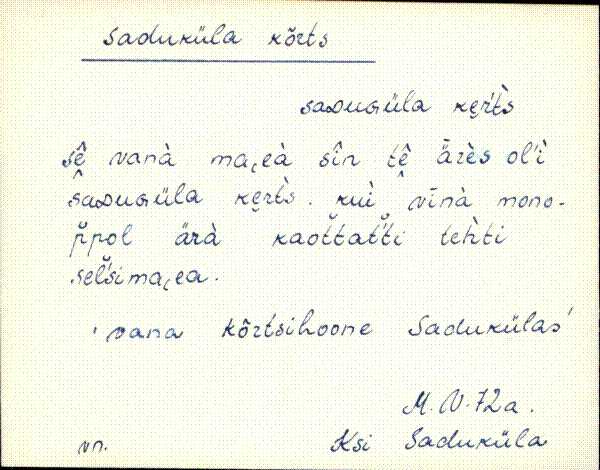 Saduküla kõrts
saᴅuɢüla ke̮r̀t̀s
sê̬ vanà majeà sîn tê̬ ärès oĺì
saᴅuɢüla ke̮rt̀s. kuì vīnà mono-
p̆pol ärà kaot̆tat̆'ti teh̀ti
sel̆'simajea.
'vana kõrtsihoone Sadukülas'
M. N. 72a.
vn. Ksi Saduküla